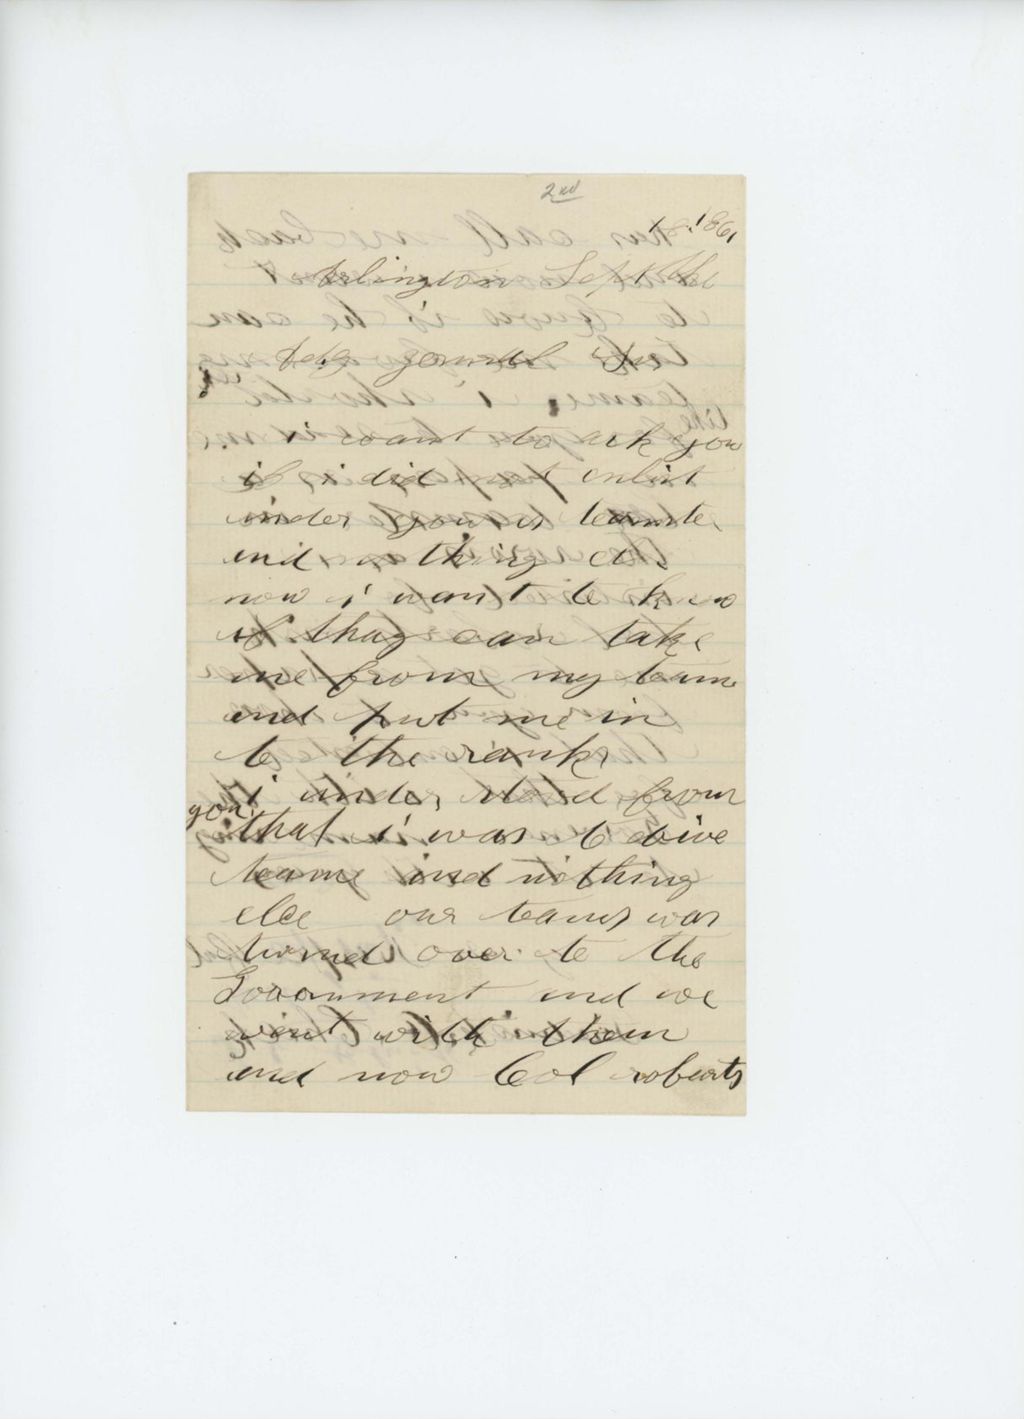 2nd
18. 1861
Arlington Sept the
Adj general Sir
i want to ask you
if i did not enlist
under you us teamster
and nothing els
now i want to kno
if thay can take
me from my team
and put me in
to the ranks
i under stood from
you
that i was to drive
team and nothing
else our teams was
turned over to the
Goovornment and we
went with them
and now Col roberts